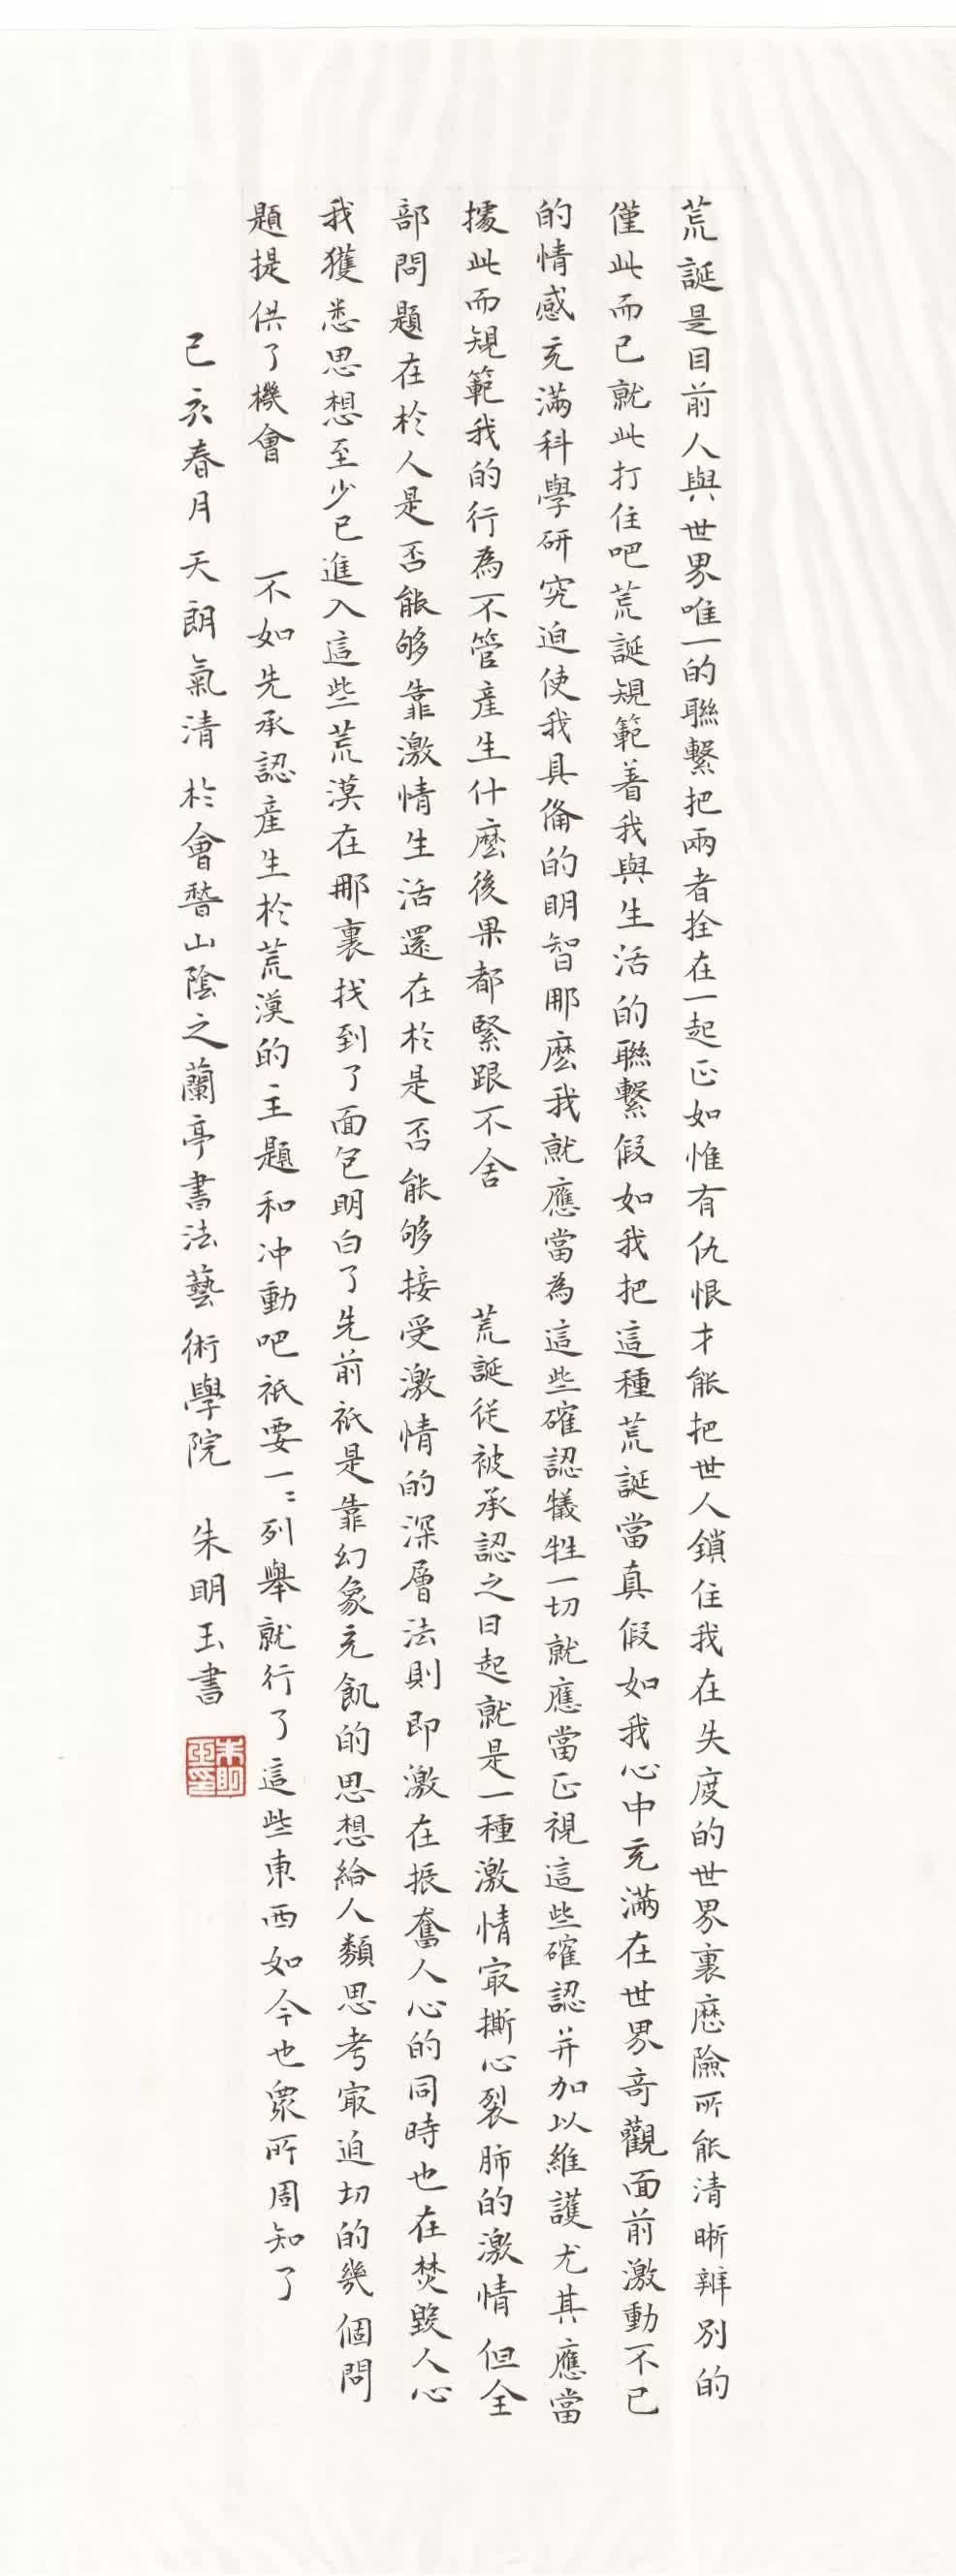 荒誕是目前人與世界唯一的聯繫把兩者拴在一起正如惟有仇恨才能把世人鎖住我在失度的世界裏歷險所能清晰辨別的
僅此而已就此打住吧荒誕規範着我與生活的聯繫假如我把這種荒誕當真假如我心中充滿在世界奇觀面前激動不已
的情感充滿科學研究迫使我具備的明智那麽我就應當為這些確認犠牲一切就應當正視這些確認并加以維護尤其應當
據此而規範我的行為不管産生什麽後果都緊跟不舍 荒誕從被承認之日起就是一種激情寂撕心裂肺的激情但全
部問題在於人是否能够靠激情生活還在於是否能够接受激情的深層法則即激在振奮人心的同時也在焚毀人心
我獲悉思想至少已進入這些荒漠在那裏找到了面包明白了先前祇是靠幻象充飢的思想給人類思考寂迫切的幾個問
題提供了機會 不如先承認産生於荒漠的主題和冲動吧祇要一二列舉就行了這些東西如今也衆所周知了
己亥春月天朗氣清於會嵇山陰之蘭亭書法藝術學院 朱明玉書
朱明玉印